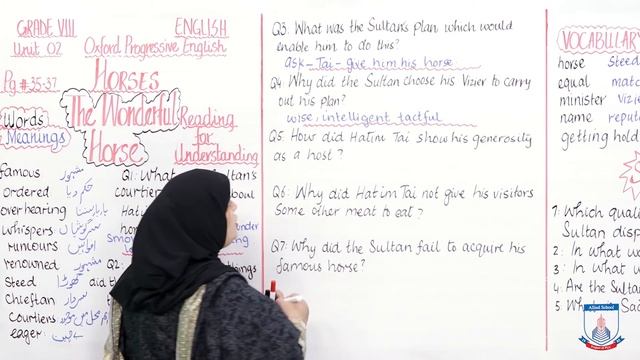 GRADE VIII
Unit 02
ENGLISH
Oxford Progressive English
HORSES
Pg # 35-37
The Wonderful
Horse
Reading
for
Understanding
Words
Meanings
famous مشہور
ordered حکم دیا
overhearing
whispers سرگوشیاں
rumours افواہیں
renowned مشہور
Steed گھوڑا
Chieftan سردار
Courtiers
eager:
Q1: What
courtiers
Q2:
did the
things
Q3: What was the Sultan's plan which would
enable him to do this?
ask-Tai-give him his horse
Q4 Why did the Sultan choose his Vizier to carry
out his plan?
wise, intelligent tactful
Q5: How did Hatim Tai show his generosity
as a host?
Q6: Why did Hatim Tai not give his visitors
some other meat to eat?
Q7: Why did the Sultan fail to acquire his
famous horse?
VOCABULARY
horse steed
equal
minister
name
getting hold
1: Which
Sultan
2: In what
3: In what
4: Are the
5:
Allied School